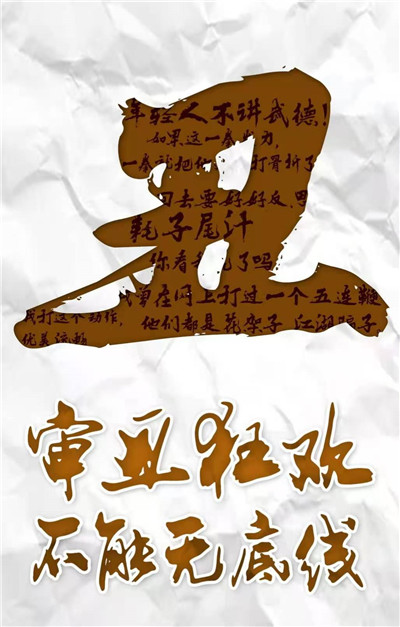 丑
年轻人不讲武德!
如果这一拳力,
一拳就把他打骨折了
去要好好反思
耗子尾汁
你看了吗
在网上打过一个五连鞭
我打这个动作, 他们都是花架子 江湖骗子,
优美流畅
审丑狂欢
不能无底线